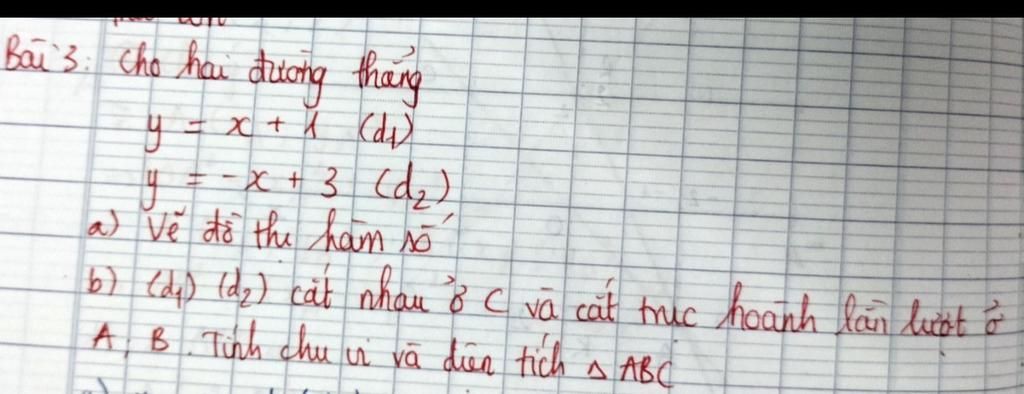 Bài 3: Cho hai đường thẳng
y = x + 1 (d1)
y = -x + 3 (d2)
a) Vẽ đồ thị hàm số
b) (d1) (d2) cắt nhau ở C và cắt trục hoành lần lượt ở
A, B. Tính chu vi và diện tích Δ ABC